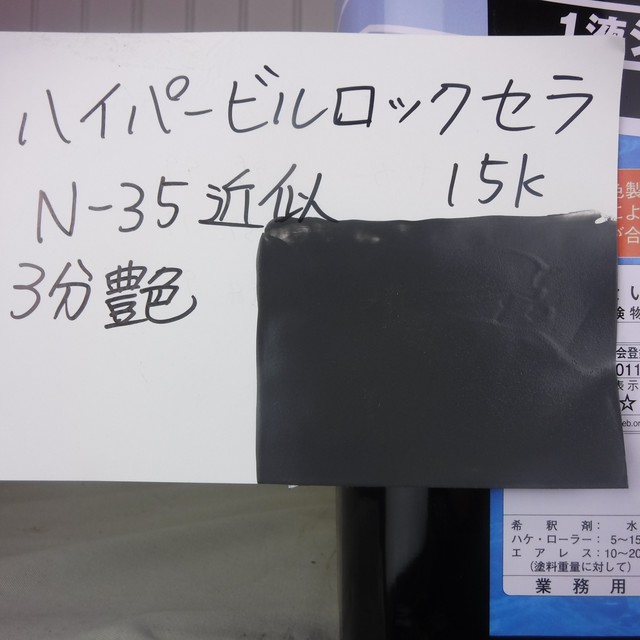 ハイパービルロックセラ
N-35近似 15K
3分艶
1液
色製
よ
が合
い
険物
会登
011
表示
☆
eb.or
希釈剤：水
ハケ・ローラー：5～15
エアレス：10～20
(塗料重量に対して)
業務用